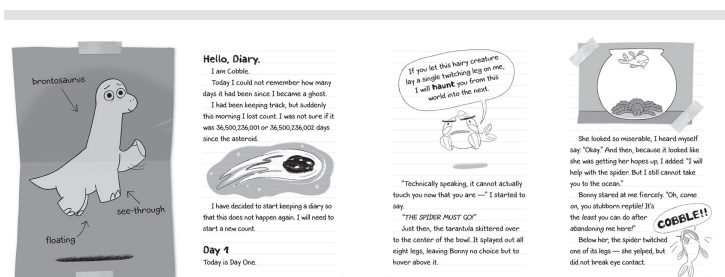 brontosaurus
see-through
floating
Hello, Diary.
I am Cobble.
Today I could not remember how many
days it had been since I became a ghost.
I had been keeping track, but suddenly
this morning I lost count. I was not sure if it
was 36,500,236,001 or 36,500,236,002 days
since the asteroid.
I have decided to start keeping a diary so
that this does not happen again. I will need to
start a new count.
Day 1
Today is Day One.
If you let this hairy creature
lay a single twitching leg on me,
I will haunt you from this
world into the next.
"Technically speaking, it cannot actually
touch you now that you are —" I started to
say.
"THE SPIDER MUST GO!"
Just then, the tarantula skittered over
to the center of the bowl. It splayed out all
eight legs, leaving Bonny no choice but to
hover above it.
She looked so miserable, I heard myself
say: "Okay." And then, because it looked like
she was getting her hopes up, I added: "I will
help with the spider. But I still cannot take
you to the ocean."
Bonny stared at me fiercely. "Oh, come
on, you stubborn reptile! It's
the least you can do after
abandoning me here!"
COBBLE!!
Below her, the spider twitched
one of its legs — she yelped, but
did not break eye contact.